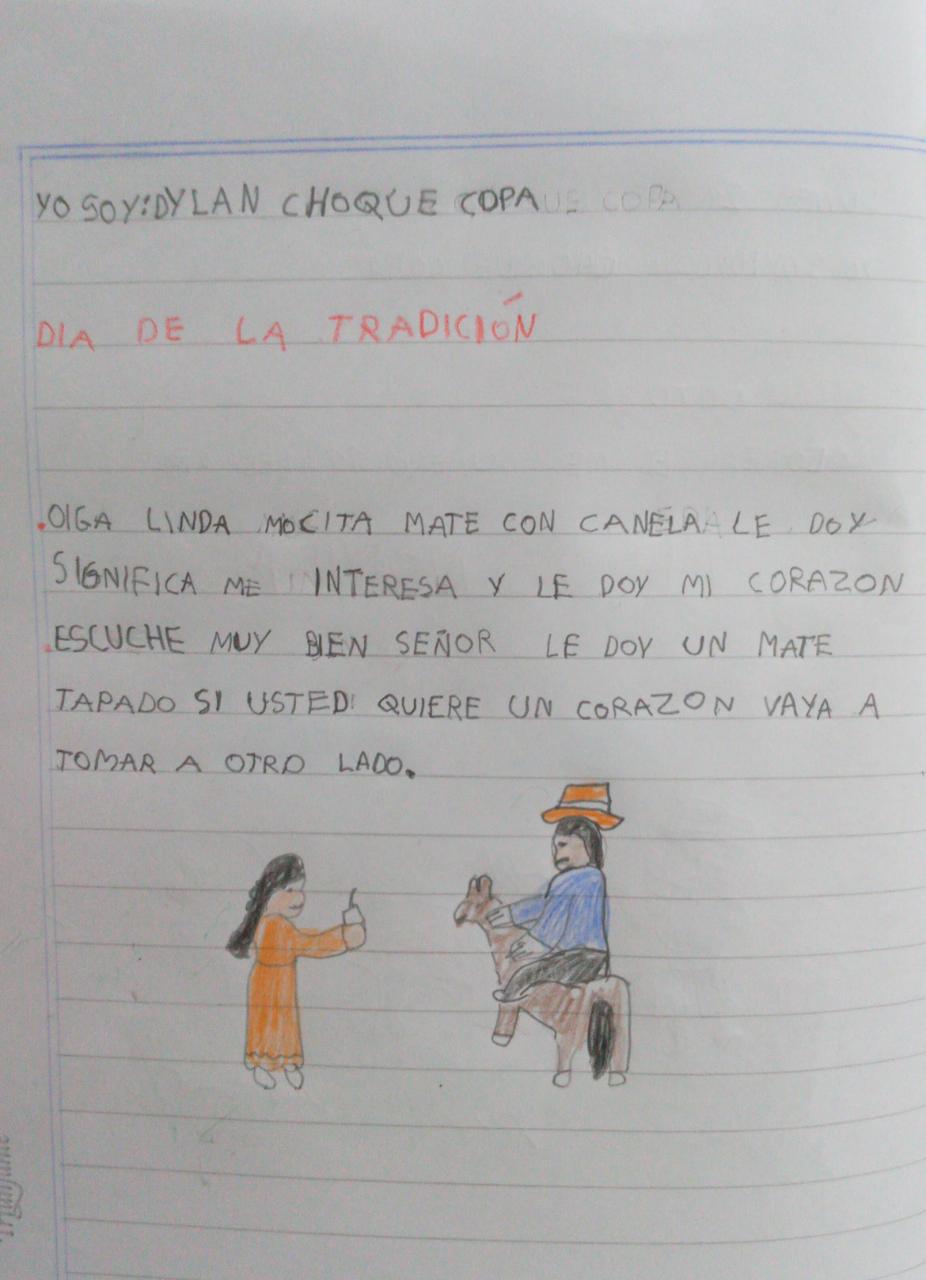 YO SOY:DYLAN CHOQUE COPA
DIA DE LA TRADICIÓN
.OIGA LINDA MOCITA MATE CON CANELA LE DOY
SIGNIFICA ME INTERESA Y LE DOY MI CORAZON
.ESCUCHE MUY BIEN SEÑOR LE DOY UN MATE
TAPADO SI USTED QUIERE UN CORAZON VAYA A
TOMAR A OTRO LADO.